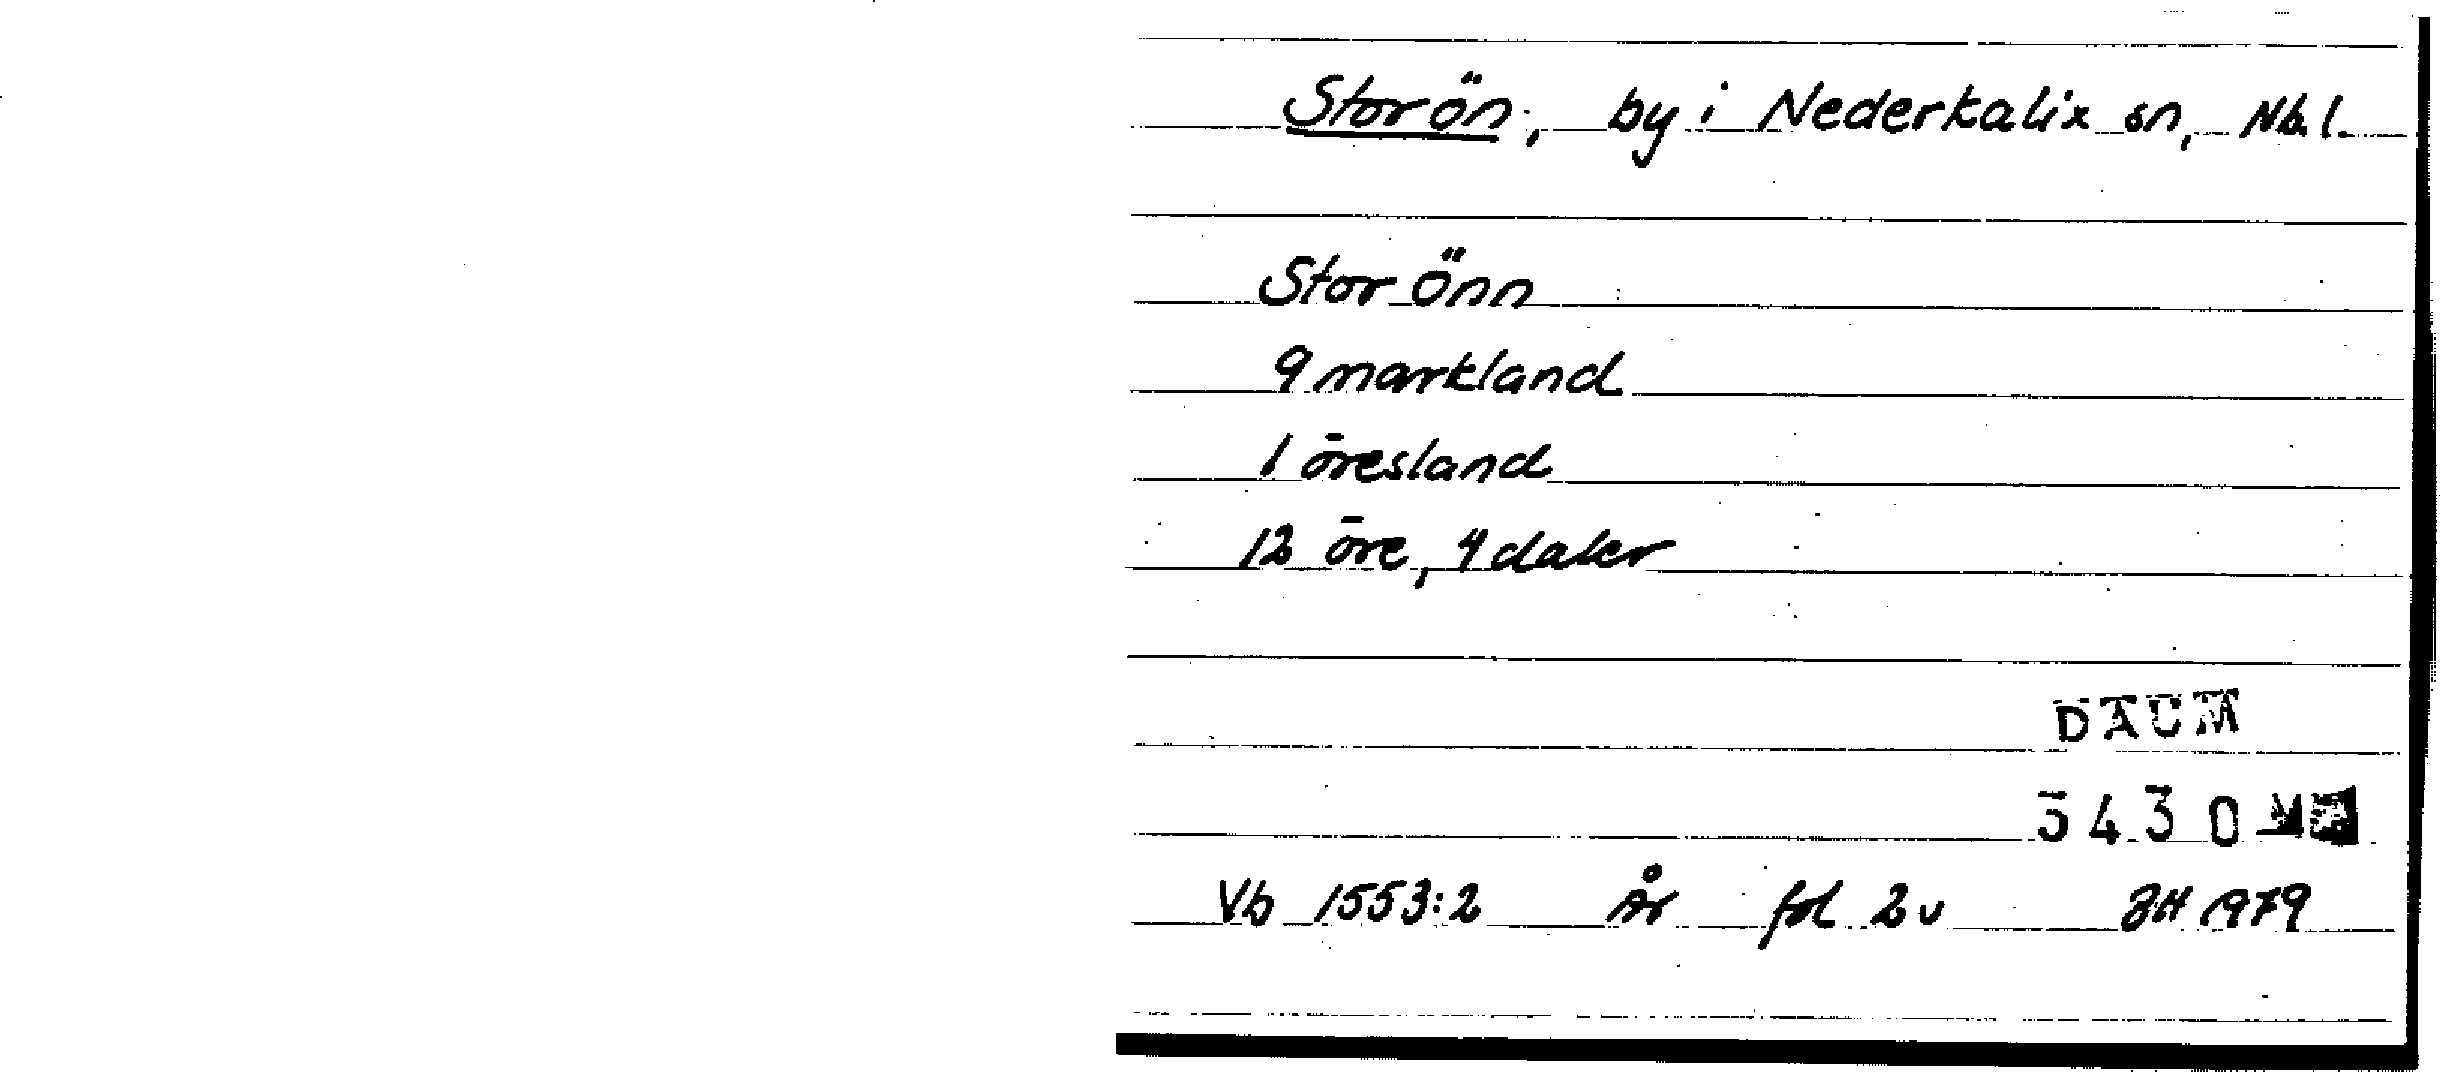 Storön, by i Nederkalix sn, Nb. l.
Stor Önn
9 markland
1 öresland
12 öre, 4 daler
DAUM
3430
Vb 1553:2 År fol 2 v JH 1979